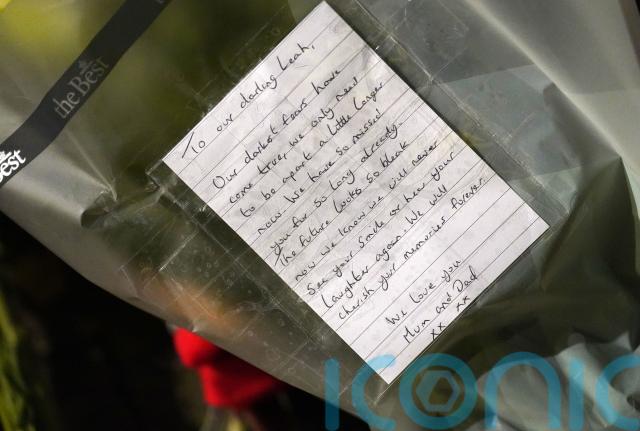 the Best
Best
To our darling Leah,
Our darkest fears have
come true, we only need
to be apart a little longer
now. We have so missed
you for so long already.
The future looks so bleak
now we know we will never
see your smile or hear your
laughter again. We will
cherish your memories forever.
We love you
Mum and Dad
xx xx
ICONIC